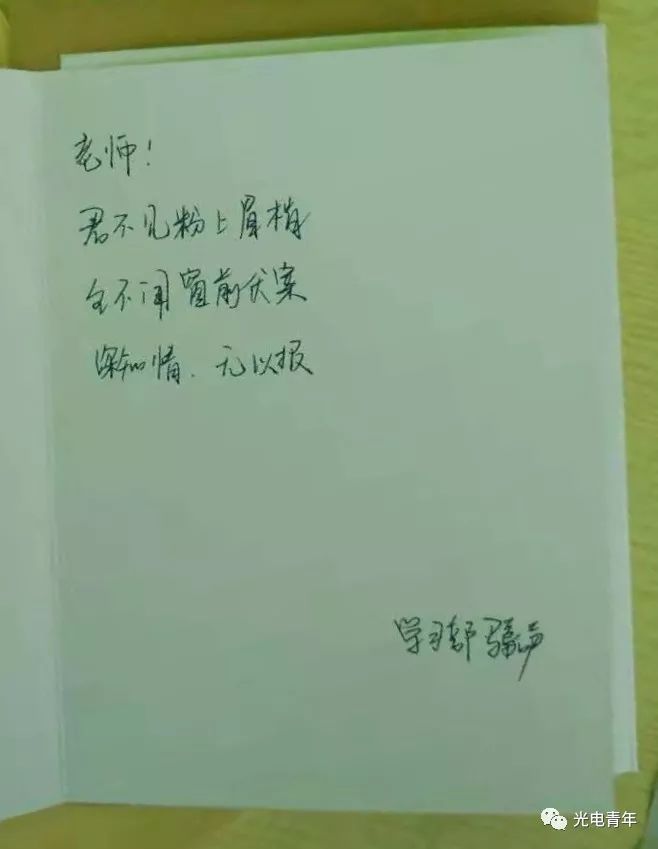 老师！
君不见粉上眉梢
全不闻窗前伏案
深知情、无以报
学习部
光电青年